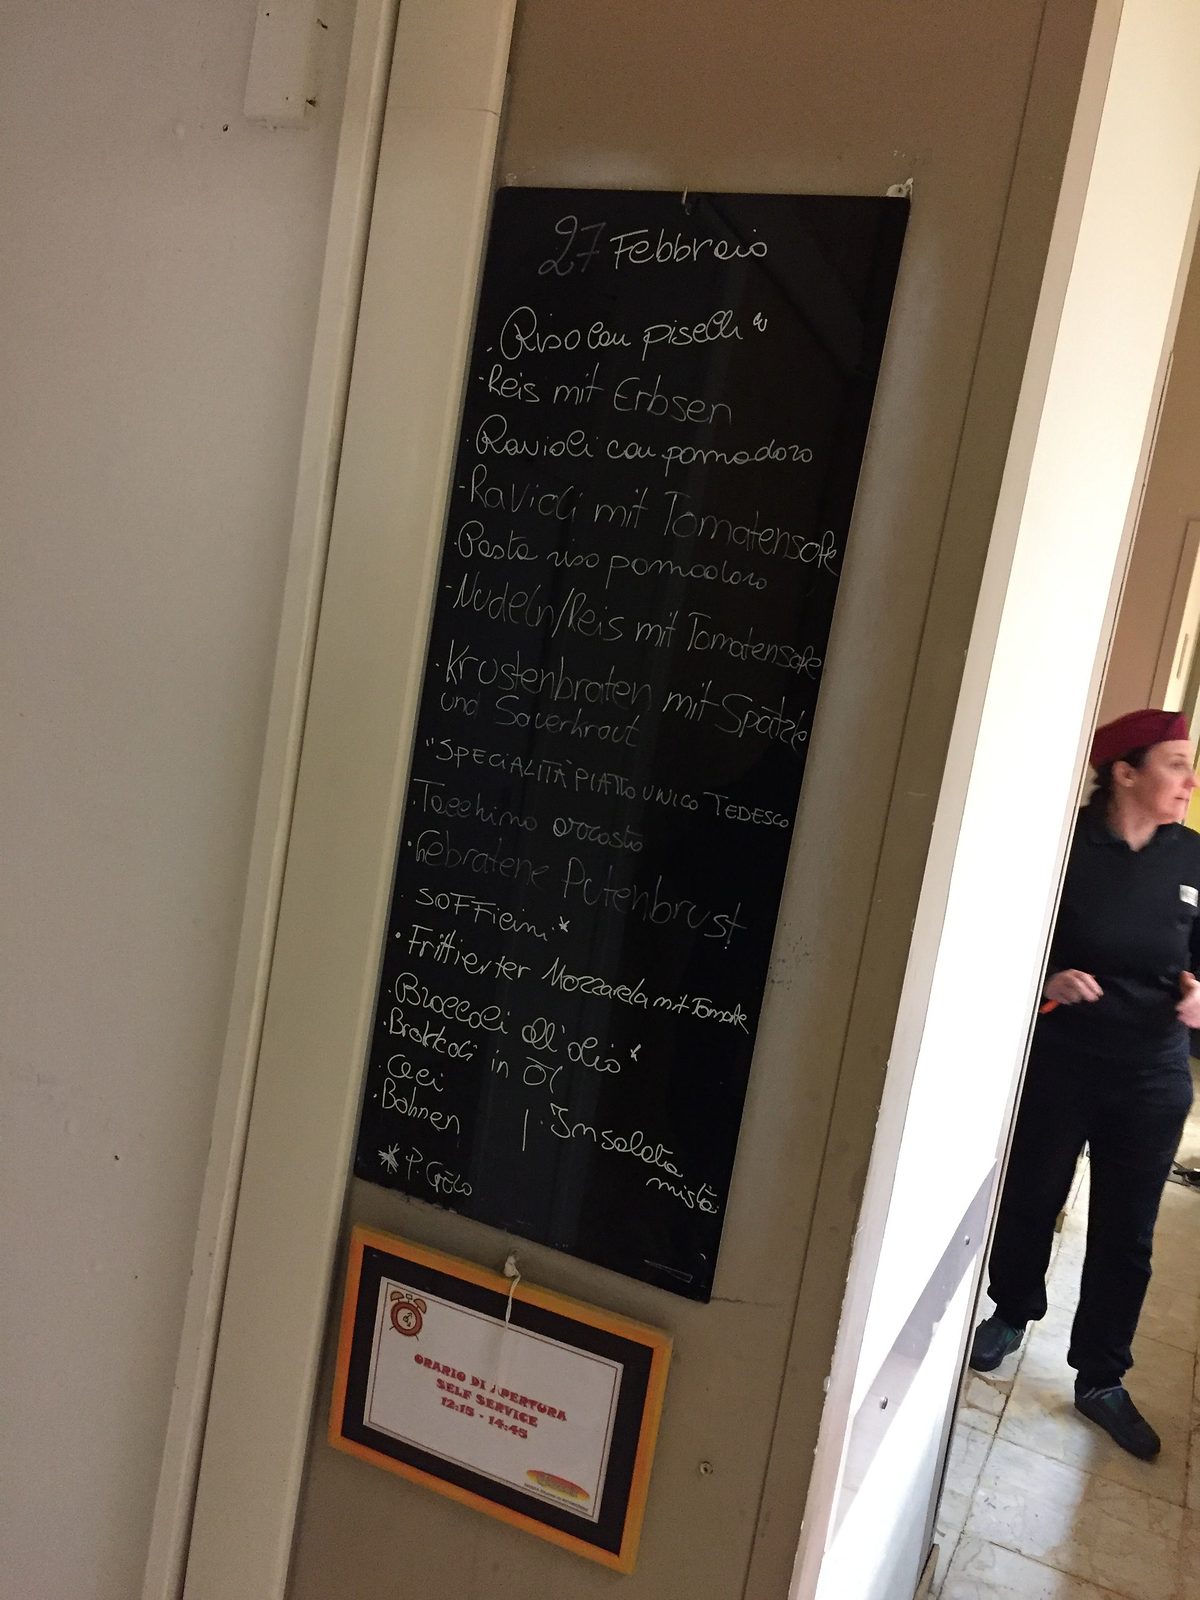 27 Febbraio
. Riso con piselli *
- Reis mit Erbsen
. Ravioli con pomodoro
- Ravioli mit Tomatensoße
. Pasta riso pomodoro
- Nudeln/Reis mit Tomatensoße
. Krustenbraten mit Spätzle
und Sauerkraut
"SPECIALITÀ PIATTO UNICO TEDESCO
. Tacchino arrosto
. Gebratene Putenbrust
. SOFFicini *
. Frittierter Mozzarela mit Tomate
. Broccoli all'olio *
. Brokkoli in Öl
. Ceci
. Bohnen
| . Insalata
mista
* P. GELO
ORARIO DI APERTURA
SELF SERVICE
12:15 - 14:45